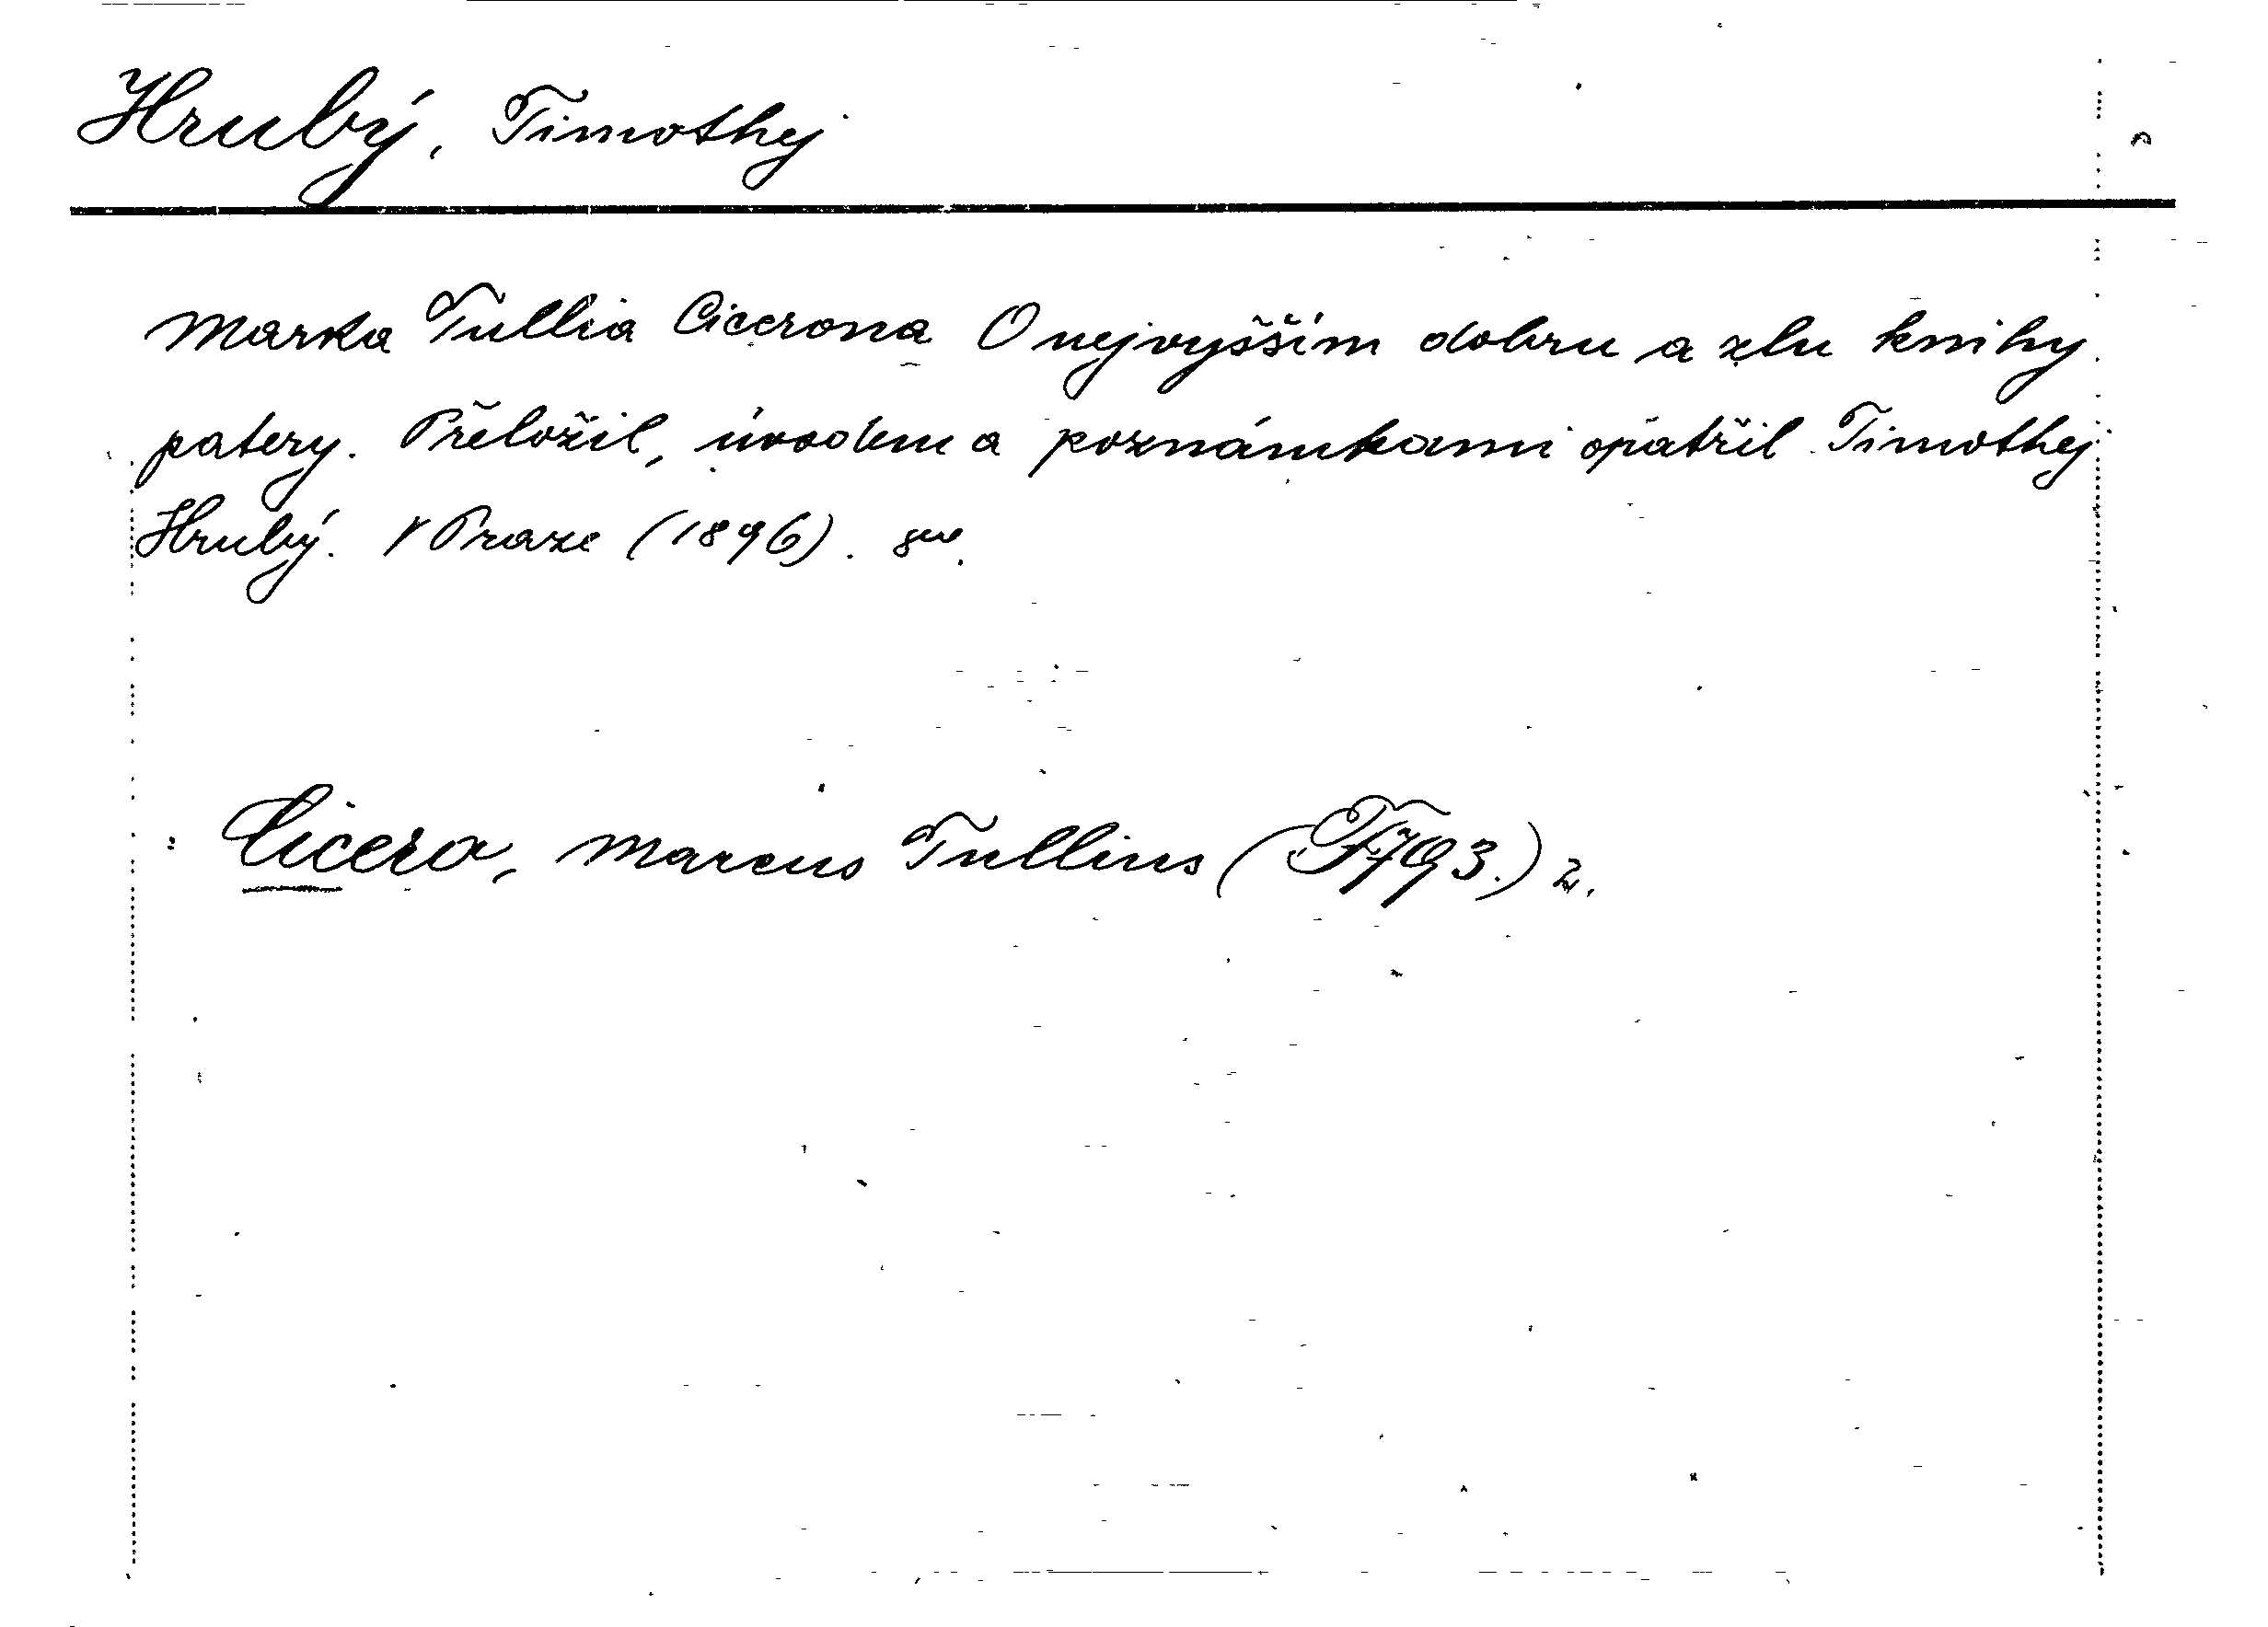 Hrubý, Timothej
Marka Tullia Cicerona O nejvyšším dobru a zlu knihy
patery. Přeložil, úvodem a poznámkami opatřil Timothej
Hrubý. V Praze (1896). 8vo.
Cicero, Marcus Tullius ( 3.) 2.